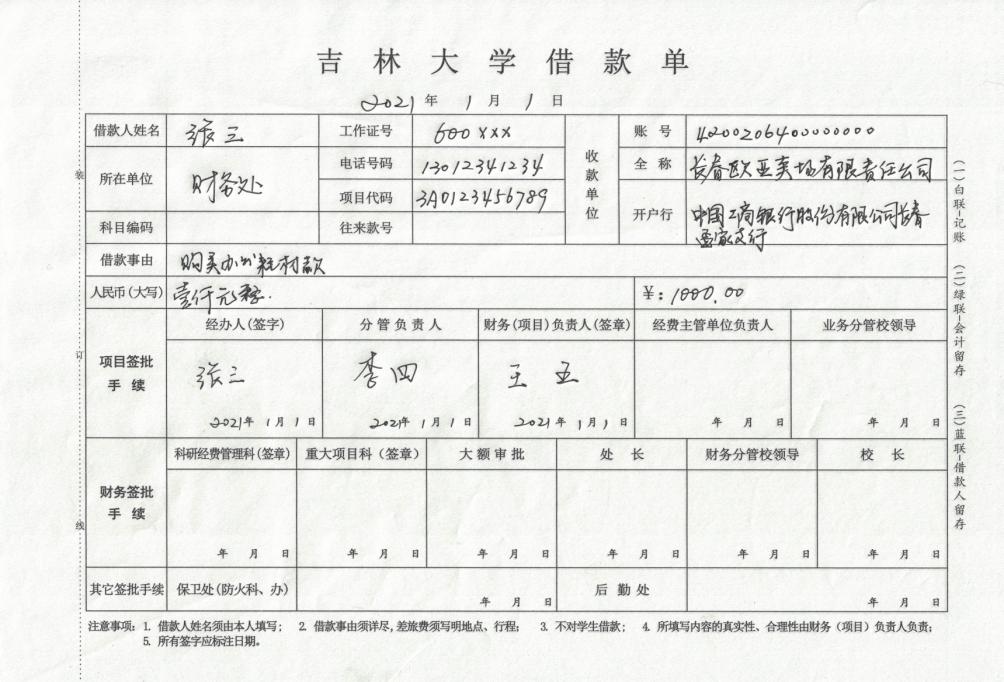 吉林大学借款单
2021年 1月 1日
借款人姓名 张三 工作证号 600xxx 收款单位 账号 4200206400000000
所在单位 财务处 电话号码 13012341234 全称 长春欧亚卖场有限责任公司
项目代码 3A0123456789 开户行 中国工商银行股份有限公司长春
孟家支行
科目编码 往来款号
借款事由 购买办公耗材款
人民币(大写) 壹仟元整. ¥: 1000.00
项目签批手续 经办人(签字) 分管负责人 财务(项目)负责人(签章) 经费主管单位负责人 业务分管校领导
张三 李四 王五
2021年 1月 1日 2021年 1月 1日 2021年 1月 1日 年 月 日 年 月 日
财务签批手续 科研经费管理科(签章) 重大项目科(签章) 大额审批 处长 财务分管校领导 校长
年 月 日 年 月 日 年 月 日 年 月 日 年 月 日 年 月 日
其它签批手续 保卫处(防火科、办) 年 月 日 后勤处 年 月 日
注意事项: 1. 借款人姓名须由本人填写; 2. 借款事由须详尽,差旅费须写明地点、行程; 3. 不对学生借款; 4. 所填写内容的真实性、合理性由财务(项目)负责人负责;
5. 所有签字应标注日期。
(一)白联-记账 (二)绿联-会计留存 (三)蓝联-借款人留存
装
订
线